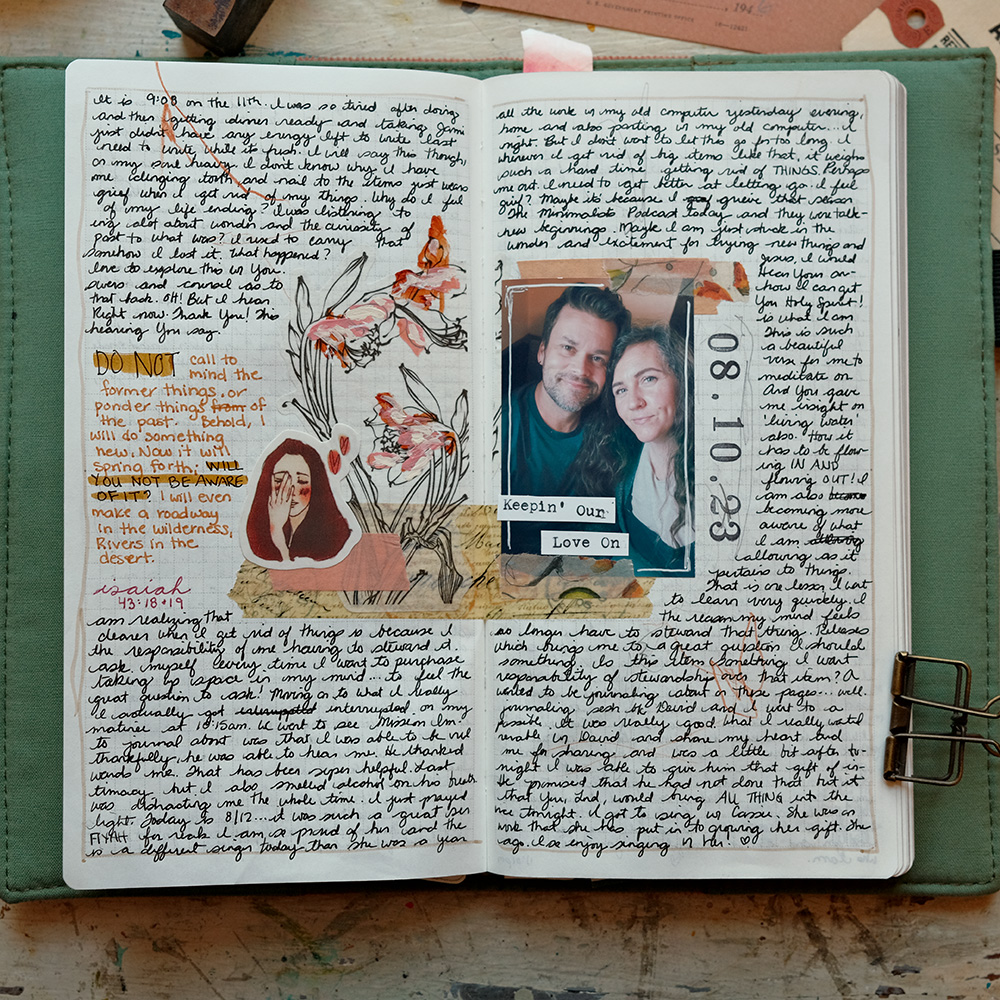 It is 9:03 on the 11th. I was so tired after doing
and then getting dinner ready and taking Jami
just didn't have any energy left to write last
need to write while it's fresh. I will say this though,
on my soul heavy. I don't know why I have
me clinging tooth and nail to the items just wears
grief when I get rid of my things. Why do I feel
of my life ending? I was listening to
ing alot about wonder and the curiosity of
past to what was? I used to carry that
somehow I lost it. What happened?
love to explore this w You.
swers and counsel as to
that back. OH! But I hear
Right now. Thank You! This
hearing You say.
DO NOT call to
mind the
former things, or
ponder things from of
the past. Behold, I
will do something
new, Now it will
spring forth; WILL
YOU NOT BE AWARE
OF IT? I will even
make a roadway
in the wilderness,
Rivers in the
desert.
isaiah
43:18+19
am realizing that
clearer when I get rid of things is because I
the responsibility of me having to steward it.
ask myself every time I want to purchase
taking up space in my mind... to feel the
great question to ask! Moving on to what I really
I actually got interrupted on my
matinee at 10:15am. We went to see Mission Im-
to journal about was that I was able to be vul
thankfully, he was able to hear me. He thanked
wards me. That has been super helpful. Last
timacy but I also smelled alcohol on his breath
was distracting me the whole time. I just prayed
light. Today is 8/12... it was such a great ser
FIYAH for real. I am so proud of her and the
is a different singer today than she was a year
all the work in my old computer yesterday evening,
home and also parting w my old computer... I
night. But I don't want to let this go for too long. I
whenever I get rid of big items like that, it weighs
such a hard time getting rid of THINGS. Perhaps
me out. I need to get better at letting go. I feel
grief? Maybe it's because I grieve that season
The Minimalists Podcast today and they were talk-
new beginnings. Maybe I am just stuck in the
wonder and excitement for trying new things and
Jesus, I would
Hear Your an-
how I can get
You Holy Spirit!
is what I am
This is such
a beautiful
verse for me to
meditate on.
And You gave
me insight on
'living water'
also. How it
has to be flow-
ing IN AND
flowing OUT! I
am also
becoming more
aware of what
I am
allowing as it
pertains to things.
That is one lesson I want
to learn very quickly. I
the reason my mind feels
no longer have to steward that thing. Releases
which brings me to a great question I should
something. Is this item something I want
responsibility of stewardship over that item? A
wanted to be journaling about on these pages... well.
journaling sesh bc David and I went to a
possible. It was really good. What I really wanted
nerable w David and share my heart and
me for sharing and was a little bit after to-
night I was able to give him that gift of in-
He promised that he had not done that but it
that You, Lord, would bring ALL THING into the
me tonight. I got to sing w Cassie. She was on
work that she has put in to growing her gift. She
ago. I so enjoy singing w her!
Keepin' Our
Love On
08.10.23